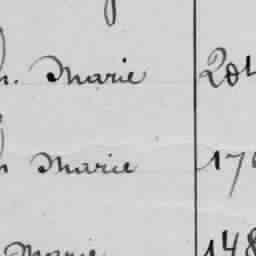 n. Marie 204
n Marie 170
Marie 148